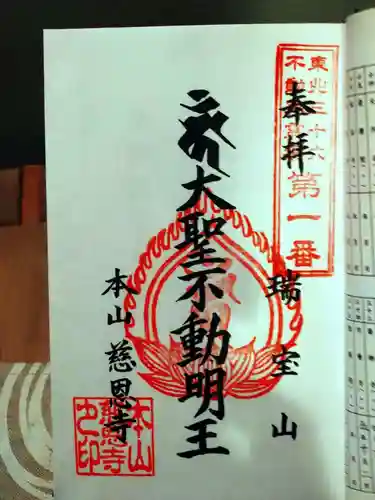 東北三十六
不動尊
第一番
奉拝
瑞宝山
大聖不動明王
本山 慈恩寺
本山
慈恩寺
之印